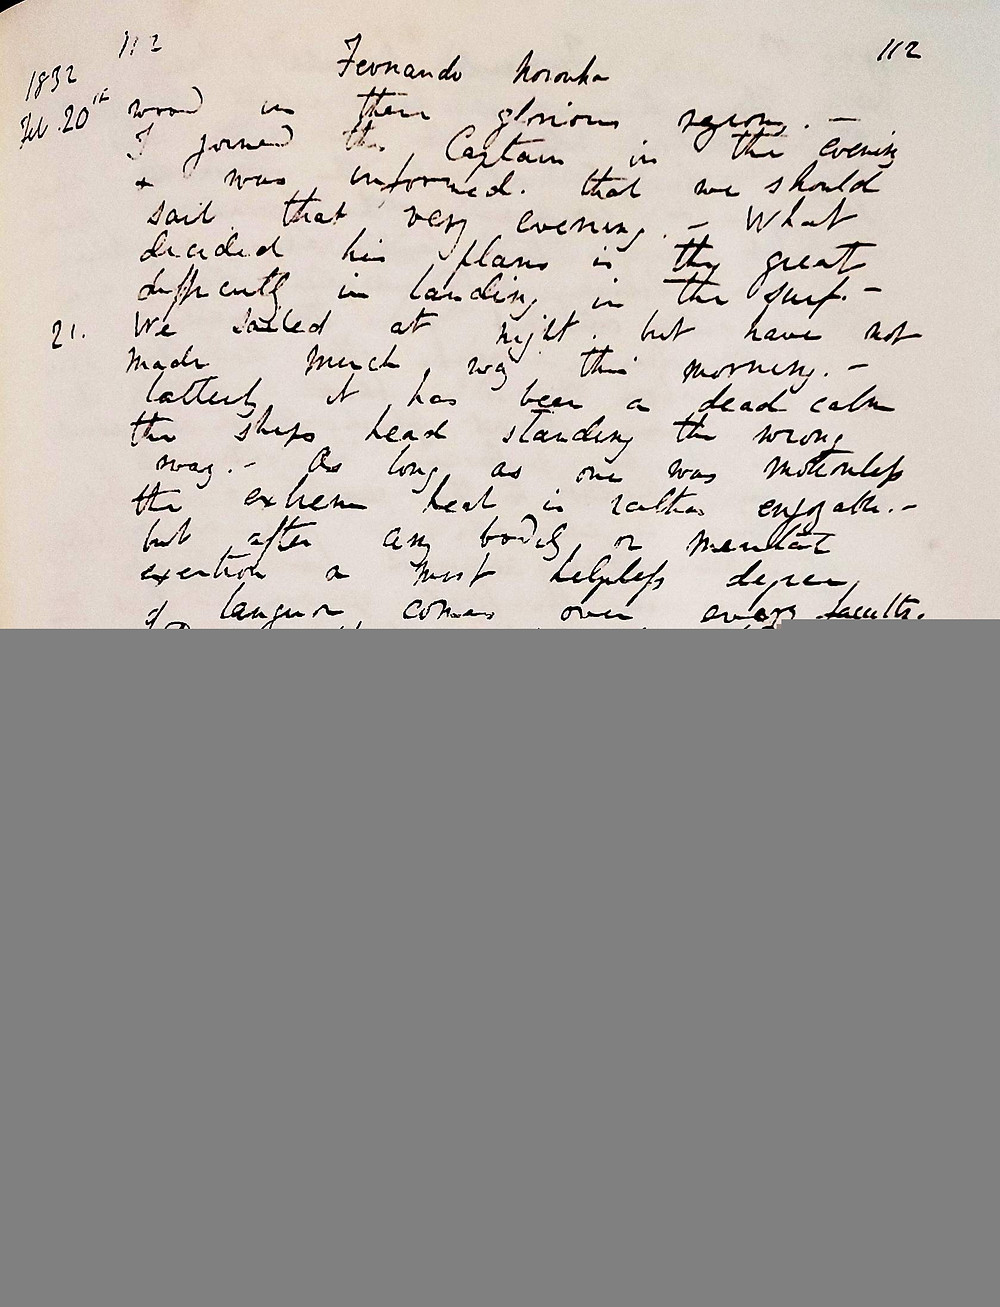 112 Fernando Noronha 112
1832
Feb. 20th wood in these glorious regions. —
I joined the Captain in the evening
& was informed. that we should
sail that very evening. — What
decided his plans is the great
difficulty in landing in the surf. —
21. We sailed at night. but have not
made much way this morning. —
latterly it has been a dead calm
the ships head standing the wrong
way. — As long as one was motionless
the extreme heat is rather enjoyable. —
but after any bodily or mental
exertion a most helpless degree
of languor comes over every faculty.